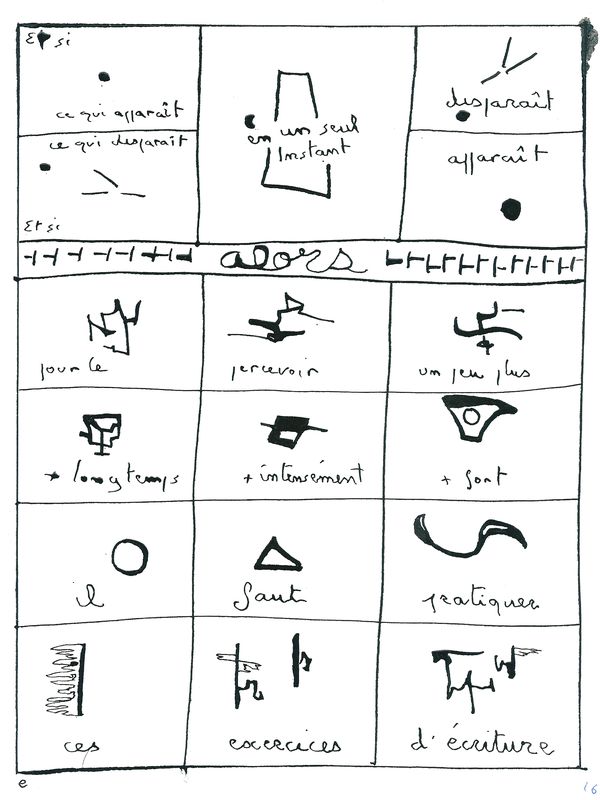 Et si
ce qui apparaît
ce qui disparaît
Et si
en un seul
instant
disparaît
apparaît
alors
pour le
percevoir
un peu plus
+ longtemps
+ intensément
+ fort
il
faut
pratiquer
ces
exercices
d'écriture
e
16